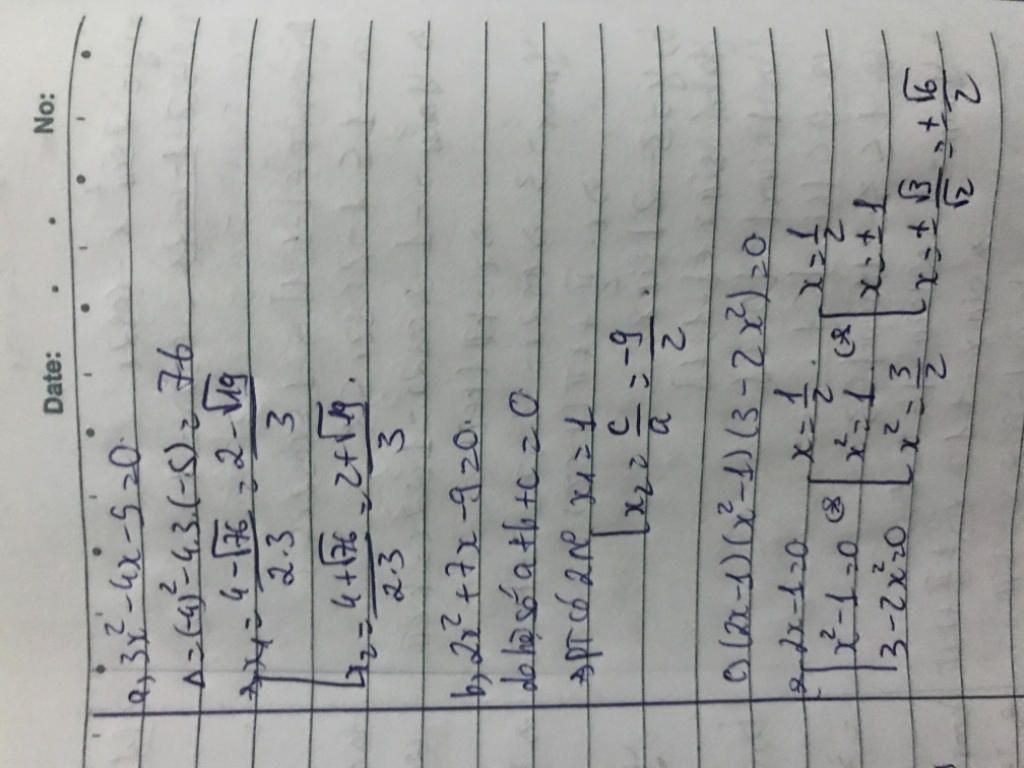 Date: No:
a, 3x² - 4x - 5 = 0.
Δ = (-4)² - 4.3.(-5) = 76
=> [ x₁ = (4 - √76)/(2.3) = (2 - √19)/3
[ x₂ = (4 + √76)/(2.3) = (2 + √19)/3.
b, 2x² + 7x - 9 = 0.
do hệ số a + b + c = 0
=> PT có 2 N° x₁ = 1
[ x₂ = c/a = -9/2.
c) (2x - 1)(x² - 1)(3 - 2x²) = 0
[ 2x - 1 = 0 x = 1/2. x = 1/2
[ x² - 1 = 0 (=> [ x² = 1 (=> [ x = ± 1
[ 3 - 2x² = 0 [ x² = 3/2 [ x = ± √3/√2 = ± √6/2